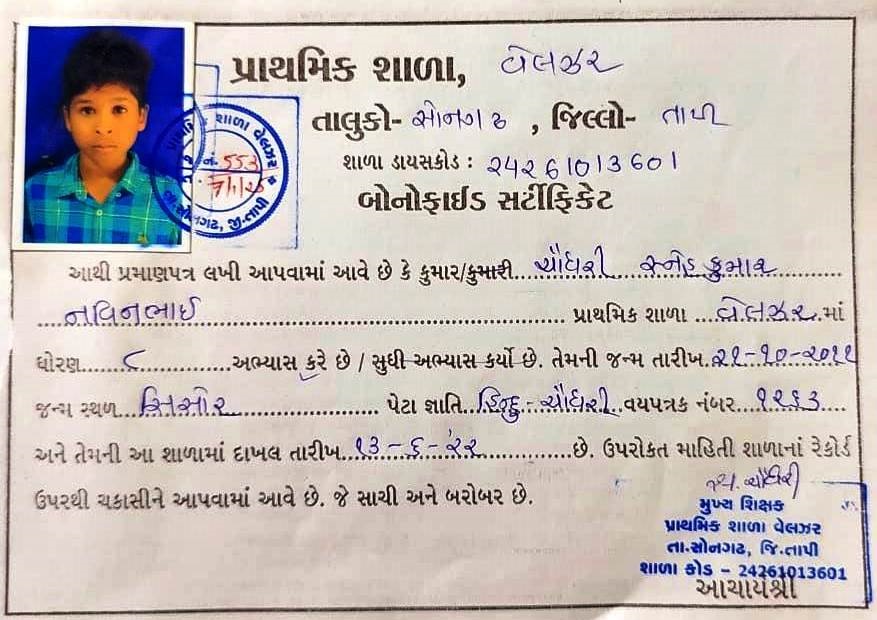 પ્રાથમિક શાળા, વેલઝર
તાલુકો- સોનગઢ , જિલ્લો- તાપી
શાળા ડાયસકોડ : ૨૪૨૬૧૦૧૩૬૦૧
બોનોફાઈડ સર્ટીફિકેટ
પ્રાથમિક શાળા વેલઝર
નં. 553
તા.સોનગઢ, જી.તાપી
આથી પ્રમાણપત્ર લખી આપવામાં આવે છે કે કુમાર/કુમારી...ચૌધરી સ્નેહકુમાર
નવિનભાઈ પ્રાથમિક શાળા ...વેલઝર.માં
ધોરણ......૮.........અભ્યાસ કરે છે / સુધી અભ્યાસ કર્યો છે. તેમની જન્મ તારીખ.૨૧-૧૦-૨૦૧૧
જન્મ સ્થળ ..સિસોર.......... પેટા જ્ઞાતિ..હિન્દુ-ચૌધરી..વયપત્રક નંબર...૧૨૬૩....
અને તેમની આ શાળામાં દાખલ તારીખ..૧૩-૬-'૨૨............છે. ઉપરોકત માહિતી શાળાનાં રેકોર્ડ
ઉપરથી ચકાસીને આપવામાં આવે છે. જે સાચી અને બરોબર છે.
મુખ્ય શિક્ષક
પ્રાથમિક શાળા વેલઝર
તા.સોનગઢ, જિ.તાપી
શાળા કોડ – 24261013601
આચાર્યશ્રી